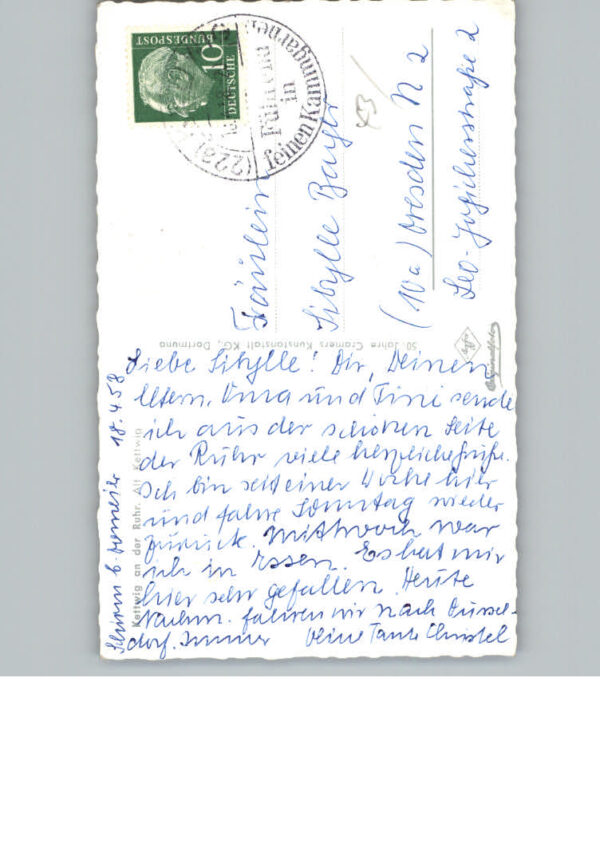 DEUTSCHE
BUNDESPOST
10
(22a)
Führend
in
feinen Kammgarnen
Fräulein
Sibylle
(10a) Dresden N 2
50 Jahre Cramers Kunstanstalt KG., Dortmund
Kettwig an der Ruhr. Alt Kettwig
18.4.58
Liebe Sibylle! Dir, Deinen
Eltern, Oma und Tini sende
ich aus der schönen Seite
der Ruhr viele herzliche Grüße.
Ich bin seit einer Woche hier
und fahre Sonntag wieder
zurück. Mittwoch war
ich in Essen. Es hat mir
hier sehr gefallen. Heute
Nachm. fahren wir nach Düssel-
dorf. Immer Deine Tante Christel